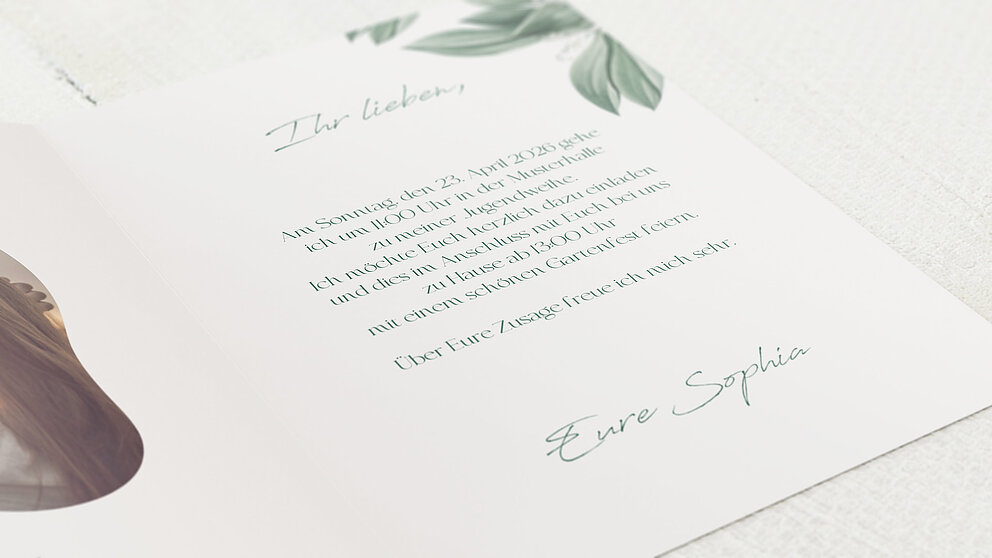 Ihr lieben,
Am Sonntag, den 23. April 2026 gehe
ich um 11:00 Uhr in der Musterhalle
zu meiner Jugendweihe.
Ich möchte Euch herzlich dazu einladen
und dies im Anschluss mit Euch bei uns
zu Hause ab 13:00 Uhr
mit einem schönen Gartenfest feiern.
Über Eure Zusage freue ich mich sehr.
Eure Sophia